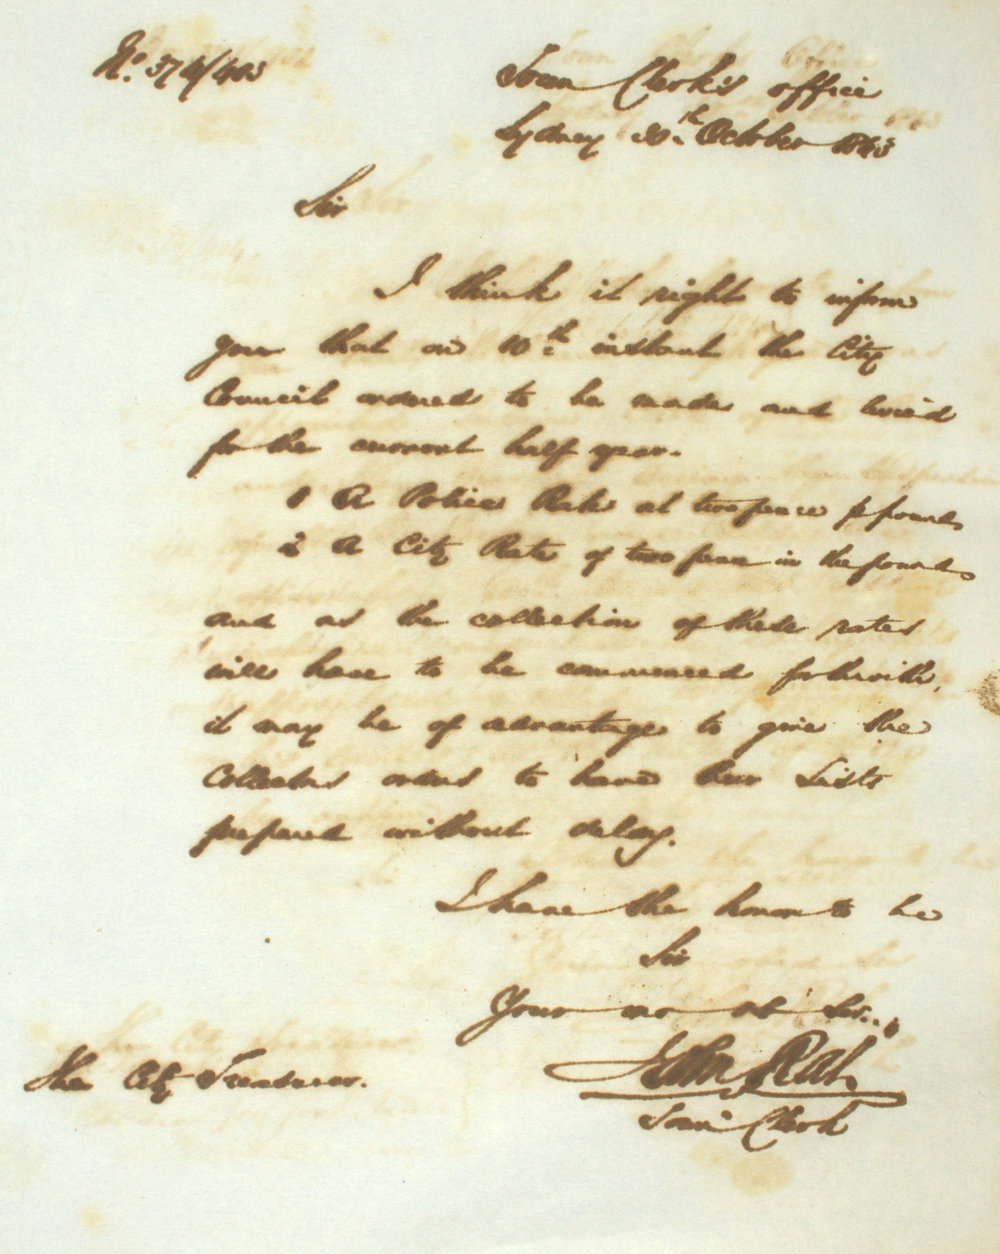 No. 374/403
Town Clerk's office
Sydney 30th October 1843
Sir
I think it right to inform
you that on 10th instant the City
Council ordered to be made and levied
for the current half year.
1 A Police Rate at twopence p pound
2 A City Rate of two pence in the pound
and as the collection of these rates
will have to be commenced forthwith,
it may be of advantage to give the
Collectors orders to have their Lists
prepared without delay.
I have the honor to be
Sir
Your mo ob Ser..
John Rae
Town Clerk
The City Treasurer.